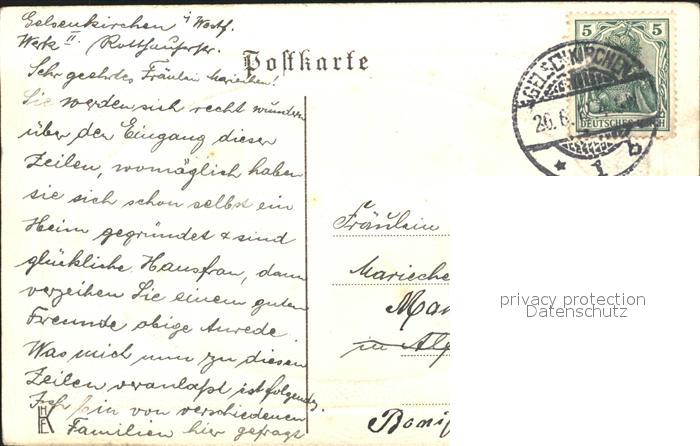 Gelsenkirchen i Westf.
Werk II. Rotthauserstr.
Postkarte
Sehr geehrtes Fräulein Mariechen!
Sie werden sich recht wundern
über den Eingang dieser
Zeilen, womöglich haben
sie sich schon selbst ein
Heim gegründet & sind
glückliche Hausfrau, dann
verzeihen Sie einem guten
Freunde obige Anrede.
Was mich nun zu diesen
Zeilen veranlaßt ist folgendes.
Ich bin von verschiedenen
Familien hier gefragt
HKF
5 5
DEUTSCHES REICH
GELSENKIRCHEN
26.6.
* 1 b
Fräulein
Marieche
Man
in Alg
Bonif
privacy protection
Datenschutz